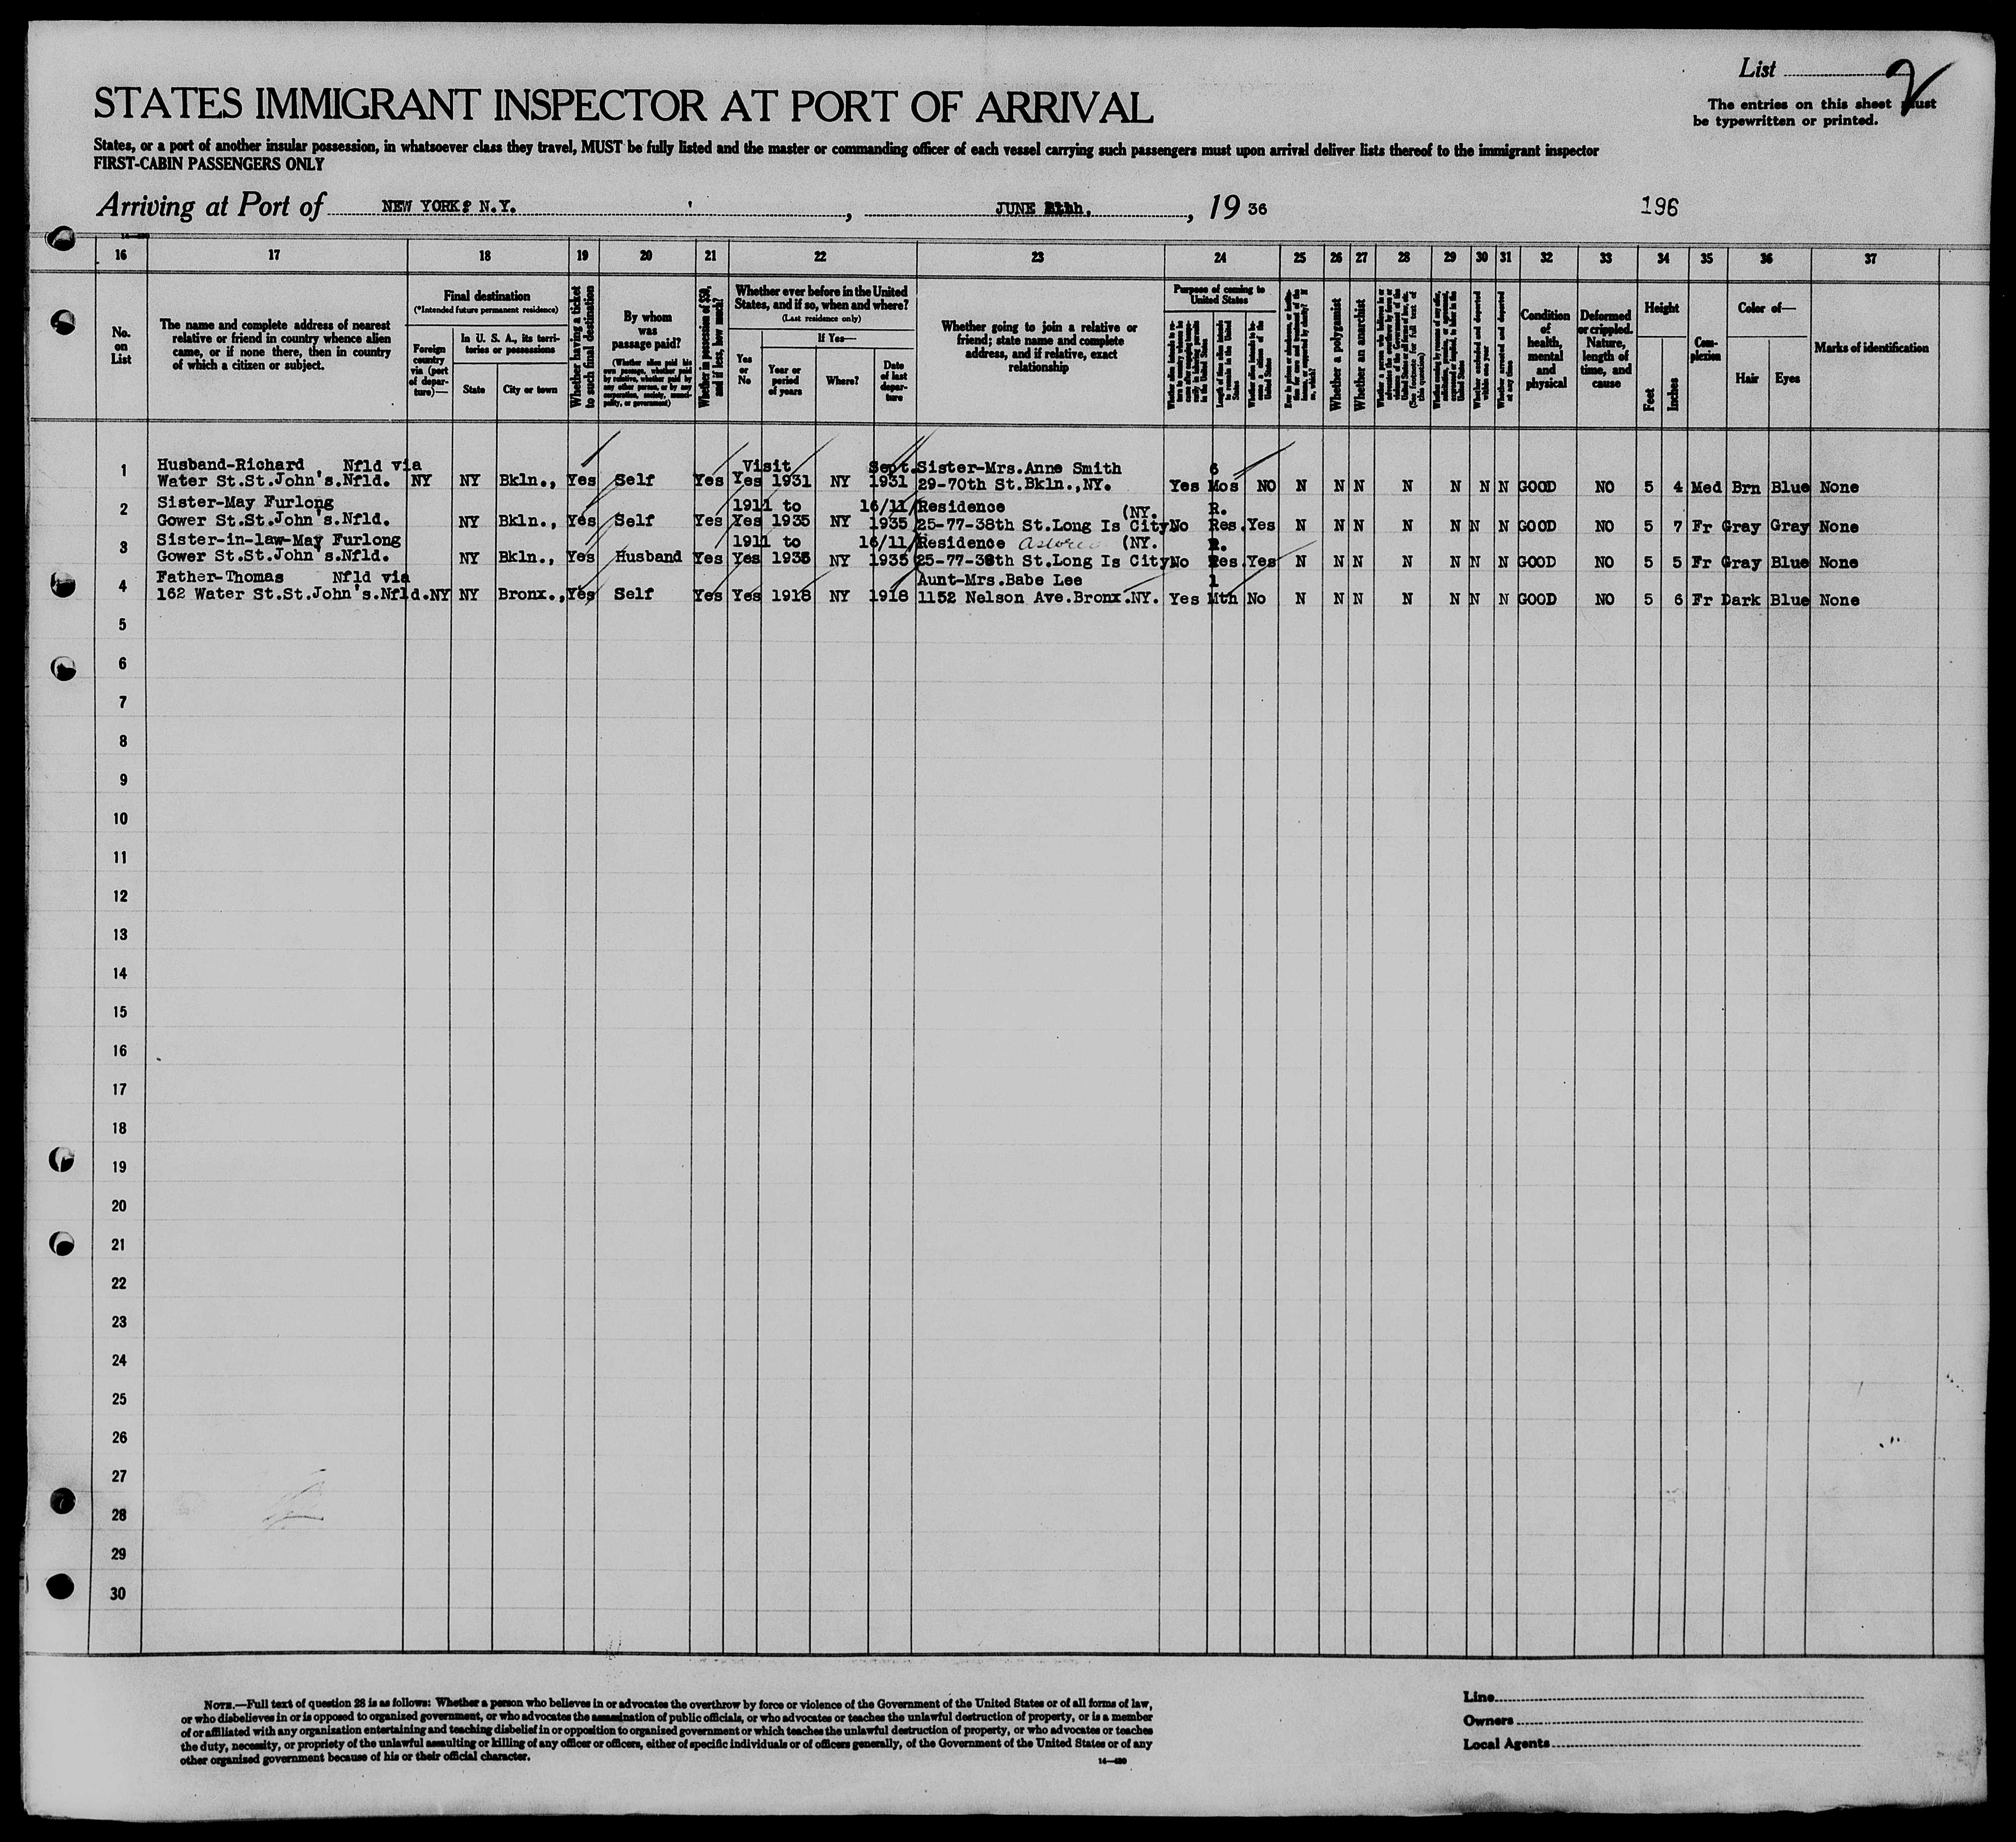 List 2
The entries on this sheet must
be typewritten or printed.
STATES IMMIGRANT INSPECTOR AT PORT OF ARRIVAL
States, or a port of another insular possession, in whatsoever class they travel, MUST be fully listed and the master or commanding officer of each vessel carrying such passengers must upon arrival deliver lists thereof to the immigrant inspector
FIRST-CABIN PASSENGERS ONLY
Arriving at Port of NEW YORK? N.Y. , JUNE , 19 36 196
16 17 18 19 20 21 22 23 24 25 26 27 28 29 30 31 32 33 34 35 36 37
No. on List
The name and complete address of nearest
relative or friend in country whence alien
came, or if none there, then in country
of which a citizen or subject.
Final destination
(*Intended future permanent residence)
Foreign country via (port of departure)—
In U. S. A., its territories or possessions
State
City or town
Whether having a ticket to such final destination
By whom was passage paid?
(Whether alien paid his own passage, whether paid by relative, whether paid by any other person, or by any corporation, society, municipality, or government)
Whether in possession of $50, and if less, how much?
Whether ever before in the United
States, and if so, when and where?
(Last residence only)
Yes or No
If Yes—
Year or period of years
Where?
Date of last departure
Whether going to join a relative or
friend; state name and complete
address, and if relative, exact
relationship
Purpose of coming to United States
Length of time alien intends to remain in the United States
Whether a polygamist
Whether an anarchist
Whether arrested and deported at any time
Condition of health, mental and physical
Deformed or crippled. Nature, length of time, and cause
Height
Feet
Inches
Complexion
Color of—
Hair
Eyes
Marks of identification
1 Husband-Richard Nfld via Visit Sept. Sister-Mrs.Anne Smith 6
Water St.St.John's.Nfld. NY NY Bkln., Yes Self Yes Yes 1931 NY 1931 29-70th St.Bkln.,NY. Yes Mos NO N N N N N N N GOOD NO 5 4 Med Brn Blue None
2 Sister-May Furlong 1911 to 16/11/ Residence (NY. R.
Gower St.St.John's.Nfld. NY Bkln., Yes Self Yes Yes 1935 NY 1935 25-77-38th St.Long Is City No Res. Yes N N N N N N N GOOD NO 5 7 Fr Gray Gray None
3 Sister-in-law-May Furlong 1911 to 16/11/ Residence (NY. R.
Gower St.St.John's.Nfld. NY Bkln., Yes Husband Yes Yes 1935 NY 1935 25-77-38th St.Long Is City No Res. Yes N N N N N N N GOOD NO 5 5 Fr Gray Blue None
4 Father-Thomas Nfld via Aunt-Mrs.Babe Lee 1
162 Water St.St.John's.Nfld. NY NY Bronx., Yes Self Yes Yes 1918 NY 1918 1152 Nelson Ave.Bronx.NY. Yes Mth No N N N N N N N GOOD NO 5 6 Fr Dark Blue None
5
6
7
8
9
10
11
12
13
14
15
16
17
18
19
20
21
22
23
24
25
26
27
28
29
30
NOTE.—Full text of question 28 is as follows: Whether a person who believes in or advocates the overthrow by force or violence of the Government of the United States or of all forms of law,
or who disbelieves in or is opposed to organized government, or who advocates the assassination of public officials, or who advocates or teaches the unlawful destruction of property, or is a member
of or affiliated with any organization entertaining and teaching disbelief in or opposition to organized government or which teaches the unlawful destruction of property, or who advocates or teaches
the duty, necessity, or propriety of the unlawful assaulting or killing of any officer or officers, either of specific individuals or of officers generally, of the Government of the United States or of any
other organized government because of his or their official character.
Line
Owners
Local Agents